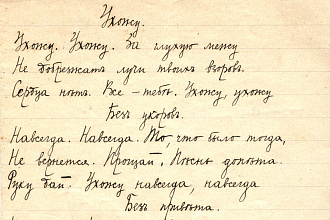 Ухожу.
Ухожу. Ухожу. За глухую межу
Не добрезжатъ лучи твоихъ взоровъ.
Сердца нотъ. Все – тебѣ. Ухожу, ухожу
Безъ укоровъ.
Навсегда. Навсегда. То, что было тогда,
Не вернется. Прощай. Пѣснь допѣта.
Руку дай. Ухожу навсегда, навсегда
Безъ привѣта.